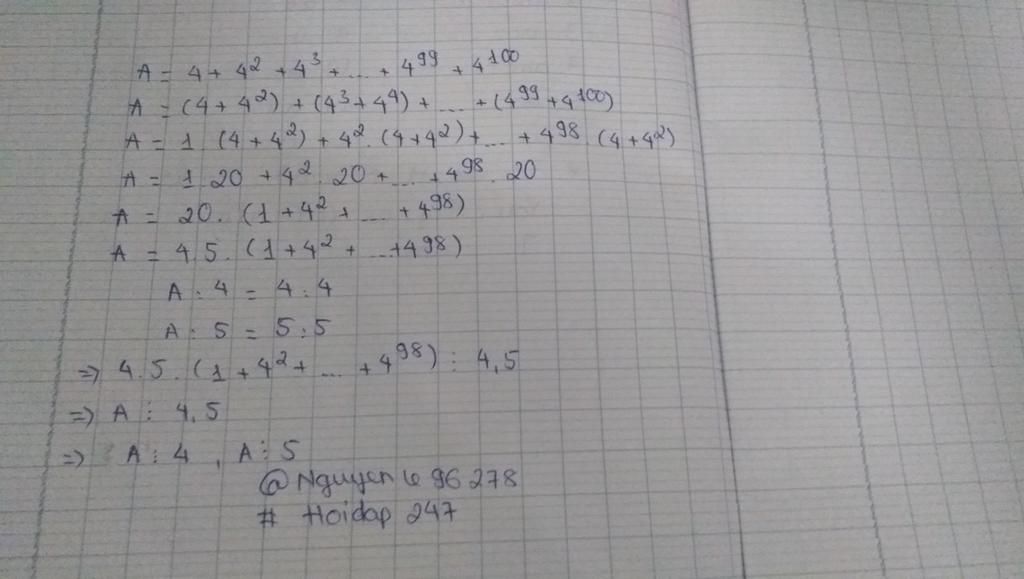 A = 4 + 4² + 4³ + ... + 4⁹⁹ + 4¹⁰⁰
A = (4 + 4²) + (4³ + 4⁴) + ... + (4⁹⁹ + 4¹⁰⁰)
A = 1. (4 + 4²) + 4². (4 + 4²) + ... + 4⁹⁸ (4 + 4²)
A = 1. 20 + 4². 20 + ... + 4⁹⁸. 20
A = 20. (1 + 4² + ... + 4⁹⁸)
A = 4.5. (1 + 4² + ... + 4⁹⁸)
A : 4 = 4 : 4
A : 5 = 5 : 5
=> 4.5. (1 + 4² + ... + 4⁹⁸) ⋮ 4,5
=> A ⋮ 4,5
=> A ⋮ 4, A ⋮ 5
@Nguyen le 96278
# Hoidap 247